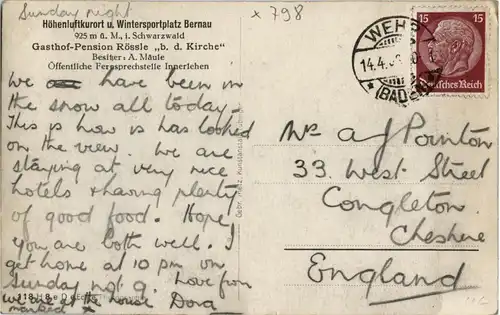 Sunday night
Höhenluftkurort u. Wintersportplatz Bernau
925 m ü. M., i. Schwarzwald
Gasthof-Pension Rössle „b. d. Kirche"
Besitzer: A. Mäule
Öffentliche Fernsprechstelle Innerlehen
We are have been in
the snow all today.
This is how is has looked
on the view. We are
staying at very nice
hotels & having plenty
of good food. Hope
you are both well. I
get home at 10 pm on
Sunday not 9. Love from
we are at the house Dora
marked x
x 798
WEHR
14.4.
(BADEN)
15 15
Deutsches Reich
Mrs a J Pointon
33. West Street
Congleton
Cheshire
England